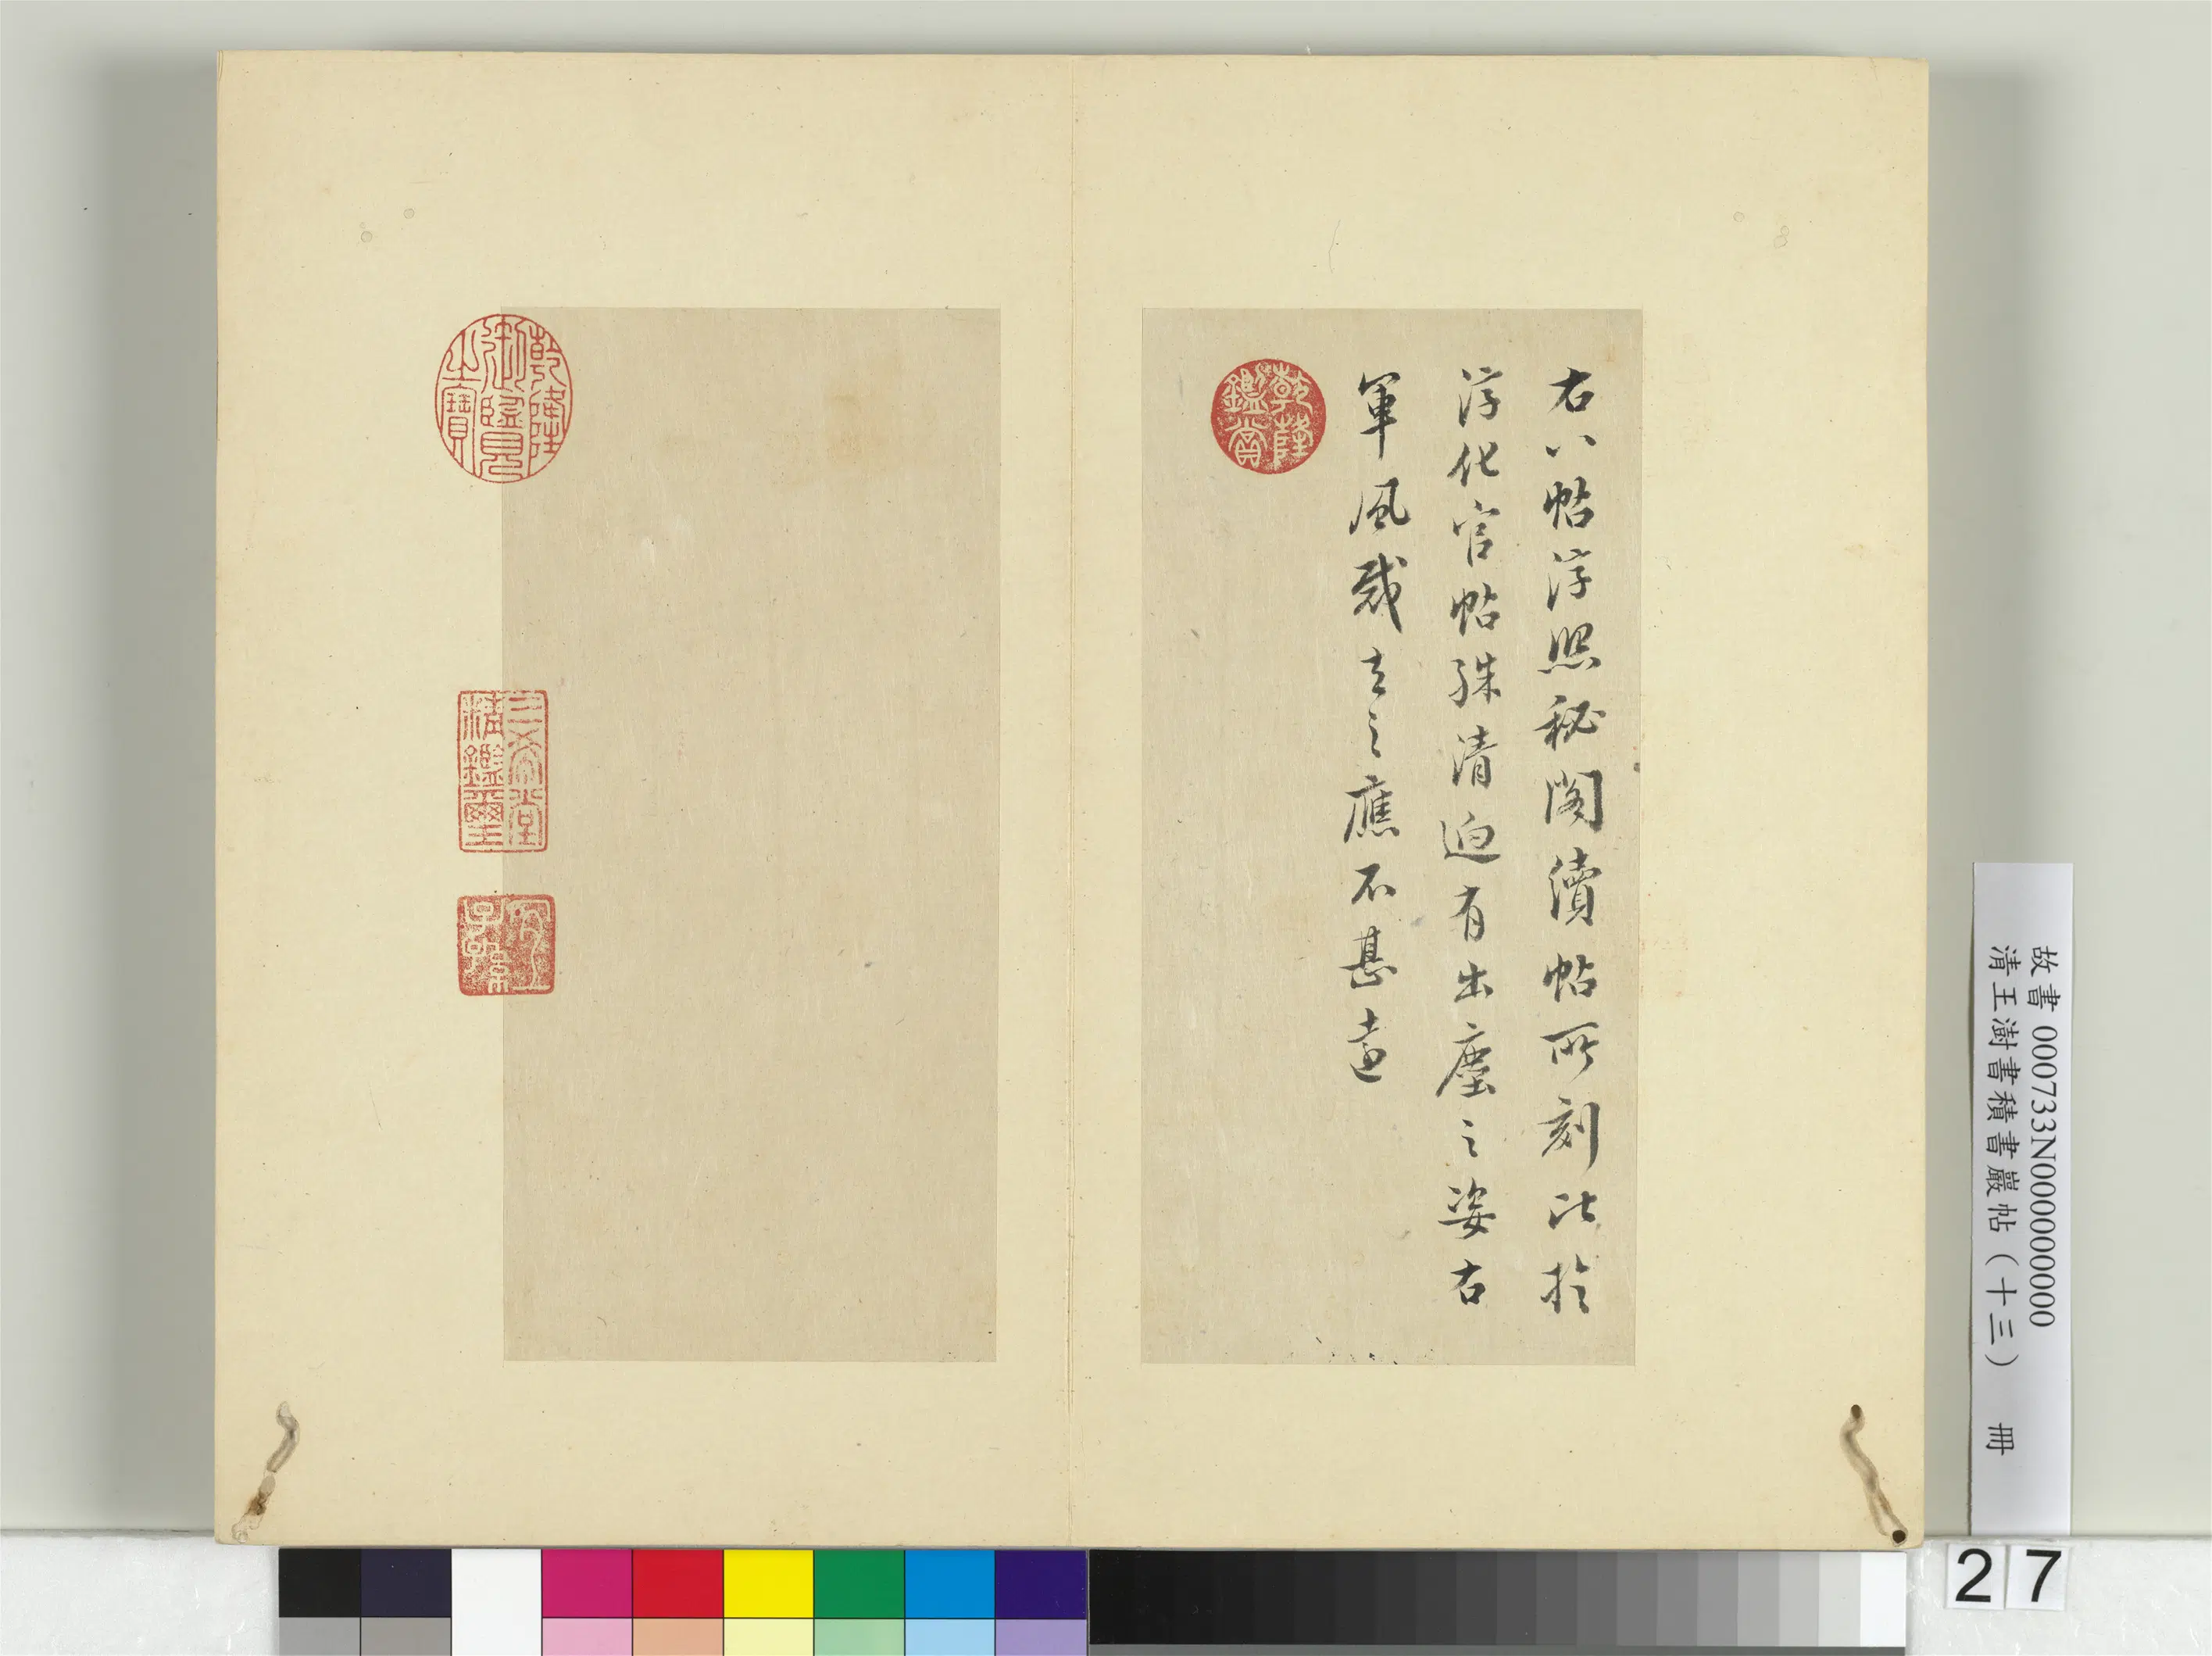 右八帖淳熙秘閣續帖所刻比於
淳化官帖殊清迥有出塵之姿右
軍風裁去之應不甚遠
乾隆鑑賞
乾隆御覽之寶
三希堂精鑑璽
宜子孫
故書 000733N000000000
清王澍書積書巖帖（十三） 冊
27